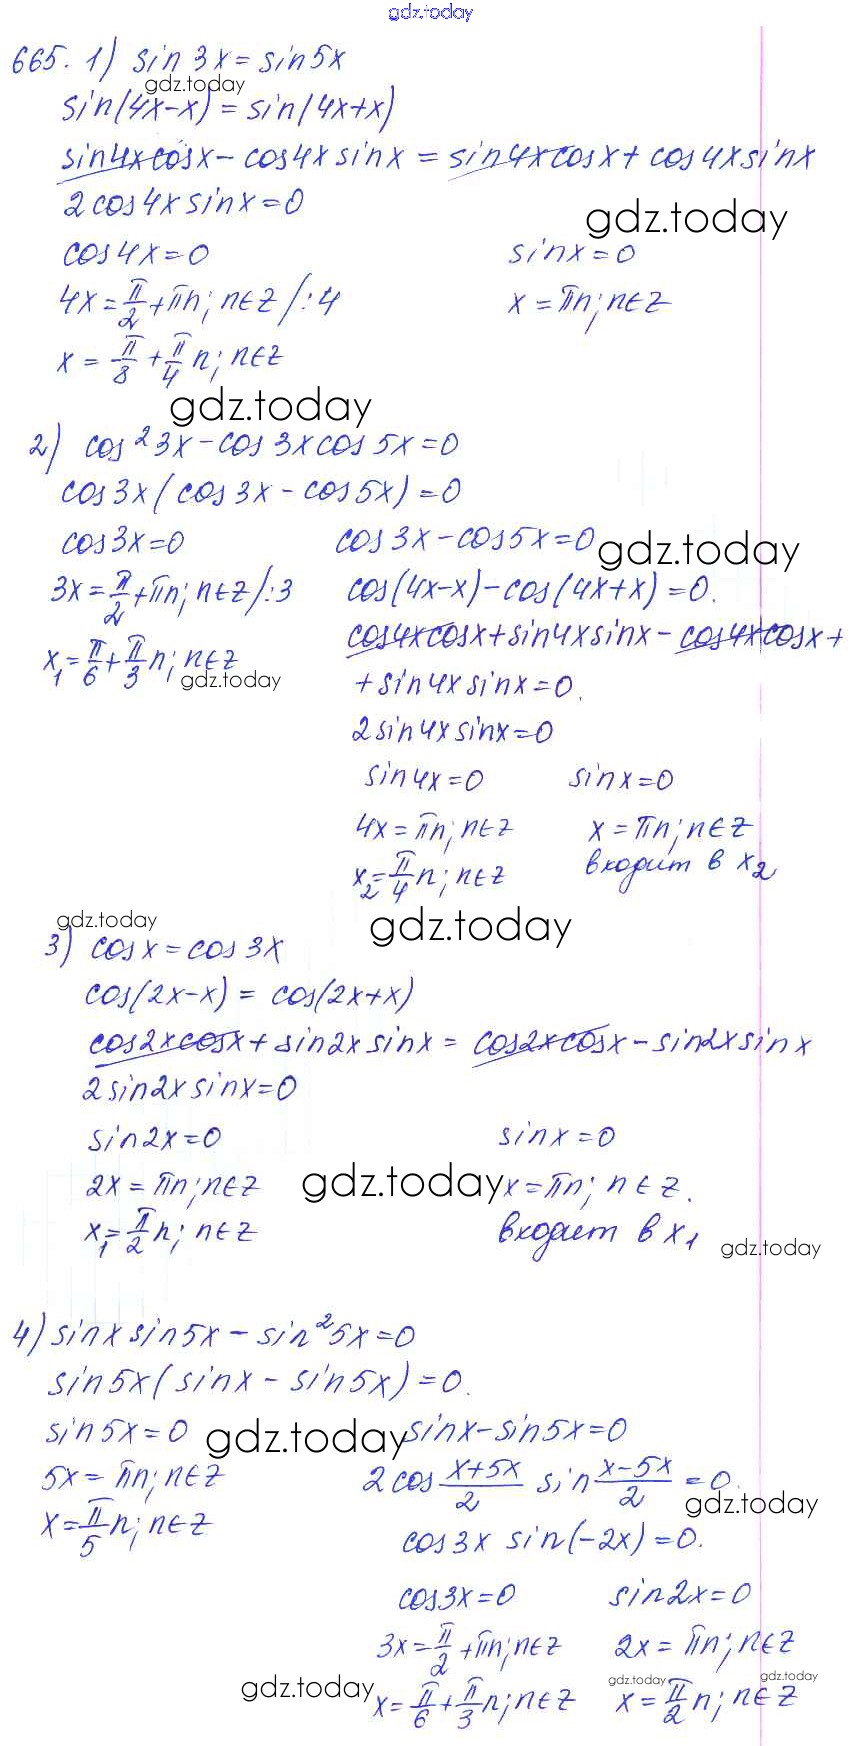 gdz.today
665. 1) sin 3x = sin 5x
gdz.today
sin(4x-x) = sin(4x+x)
sin4xcosx - cos4x sinx = sin4xcosx + cos4xsinx
2cos4x sinx = 0
gdz.today
cos4x = 0 sinx = 0
4x = π/2 + πn; n∈Z /:4 x = πn; n∈Z
x = π/8 + π/4 n; n∈Z
gdz.today
2) cos²3x - cos 3x cos 5x = 0
cos3x(cos3x - cos5x) = 0
cos3x = 0 cos3x - cos5x = 0
gdz.today
3x = π/2 + πn; n∈Z /:3 cos(4x-x) - cos(4x+x) = 0.
cos4xcosx + sin4xsinx - cos4xcosx +
x₁ = π/6 + π/3 n; n∈Z
gdz.today
+ sin4x sinx = 0.
2sin4xsinx = 0
sin4x = 0 sinx = 0
4x = πn; n∈Z x = πn; n∈Z
x₂ = π/4 n; n∈Z входит в x₂
gdz.today
gdz.today
3) cosx = cos 3x
cos(2x-x) = cos(2x+x)
cos2xcosx + sin2x sinx = cos2xcosx - sin2xsinx
2sin2x sinx = 0
sin2x = 0 sinx = 0
2x = πn; n∈Z x = πn; n∈Z.
gdz.today
x₁ = π/2 n; n∈Z входит в x₁
gdz.today
4) sinx sin5x - sin²5x = 0
sin5x(sinx - sin5x) = 0.
sin5x = 0 sinx - sin5x = 0
gdz.today
5x = πn; n∈Z 2cos (x+5x)/2 sin (x-5x)/2 = 0.
gdz.today
x = π/5 n; n∈Z cos3x sin(-2x) = 0.
cos3x = 0 sin2x = 0
3x = π/2 + πn; n∈Z 2x = πn; n∈Z
gdz.today
gdz.today
gdz.today
x = π/6 + π/3 n; n∈Z x = π/2 n; n∈Z